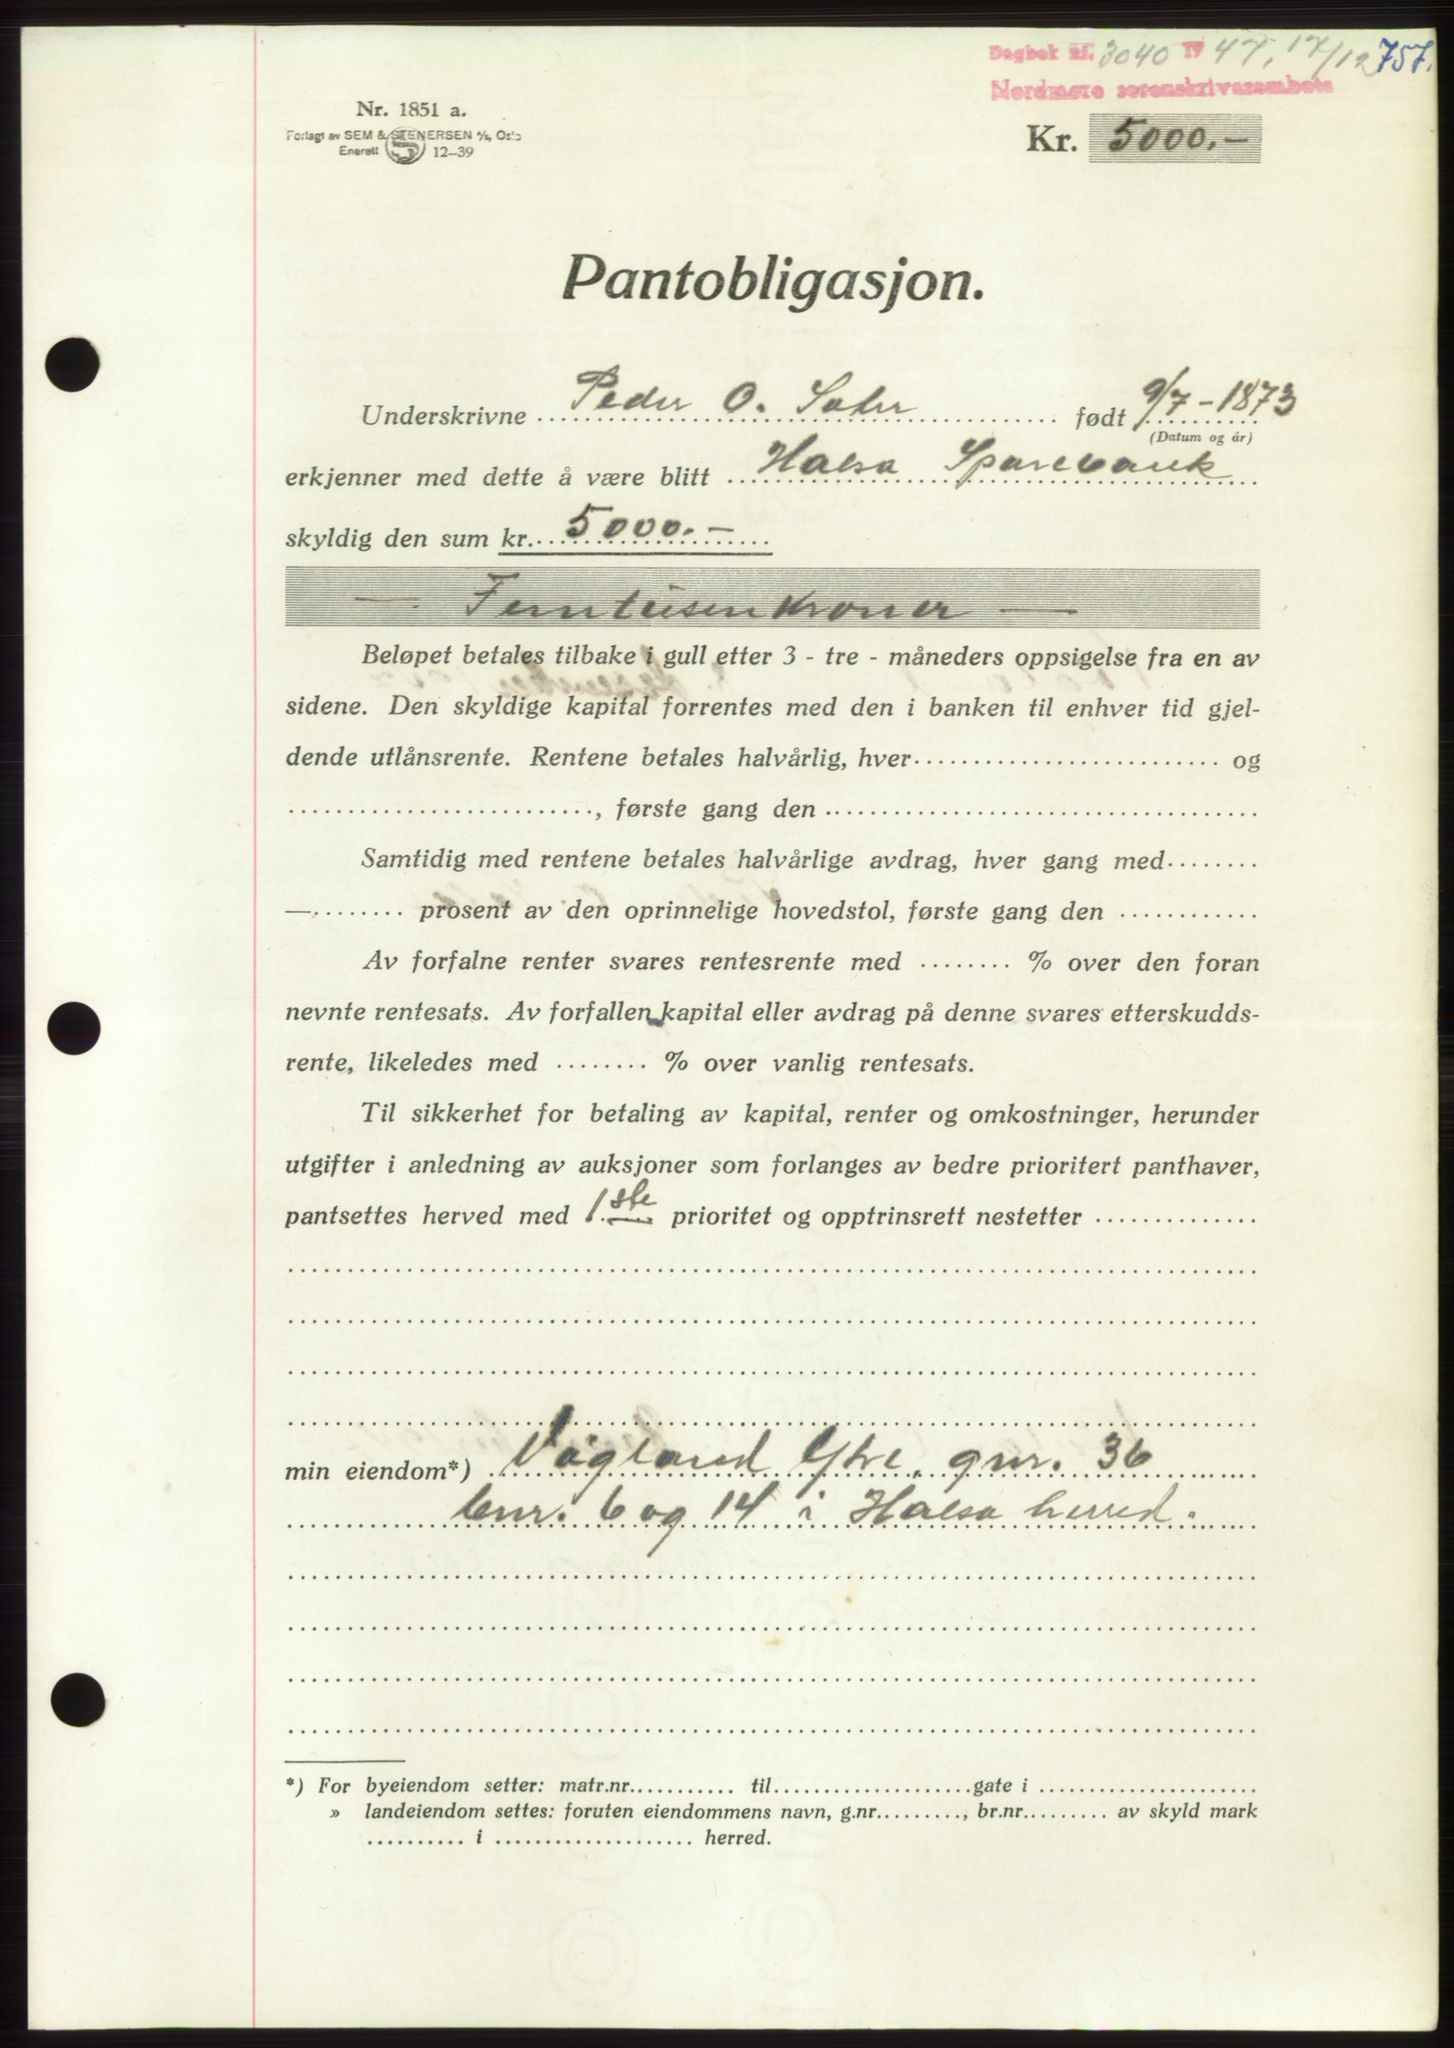 Dagbok nr. 3040 19 47, 17/12 757.
Nordmøre sorenskriverembete
Nr. 1851 a.
Forlagt av SEM & STENERSEN A/S, Oslo
Enerett S 12–39
Kr. 5000.–
Pantobligasjon.
Underskrivne Peder O. Sæter født 9/7 – 1873
(Datum og år)
erkjenner med dette å være blitt Halsa Sparebank
skyldig den sum kr. 5000.–
— Femtusenkroner —
Beløpet betales tilbake i gull etter 3 - tre - måneders oppsigelse fra en av
sidene. Den skyldige kapital forrentes med den i banken til enhver tid gjel-
dende utlånsrente. Rentene betales halvårlig, hver .......................... og
.........................., første gang den ....................................
Samtidig med rentene betales halvårlige avdrag, hver gang med ........
—........ prosent av den oprinnelige hovedstol, første gang den ............
Av forfalne renter svares rentesrente med ........ % over den foran
nevnte rentesats. Av forfallen kapital eller avdrag på denne svares etterskudds-
rente, likeledes med ........ % over vanlig rentesats.
Til sikkerhet for betaling av kapital, renter og omkostninger, herunder
utgifter i anledning av auksjoner som forlanges av bedre prioritert panthaver,
pantsettes herved med 1.ste prioritet og opptrinsrett nestetter ..............
min eiendom*) Vågland Ytre, gnr. 36
bnr. 6 og 14 i Halsa herred.
*) For byeiendom setter: matr.nr........... til....................gate i ......................
» landeiendom settes: foruten eiendommens navn, g.nr........., br.nr......... av skyld mark
.......... i .................... herred.